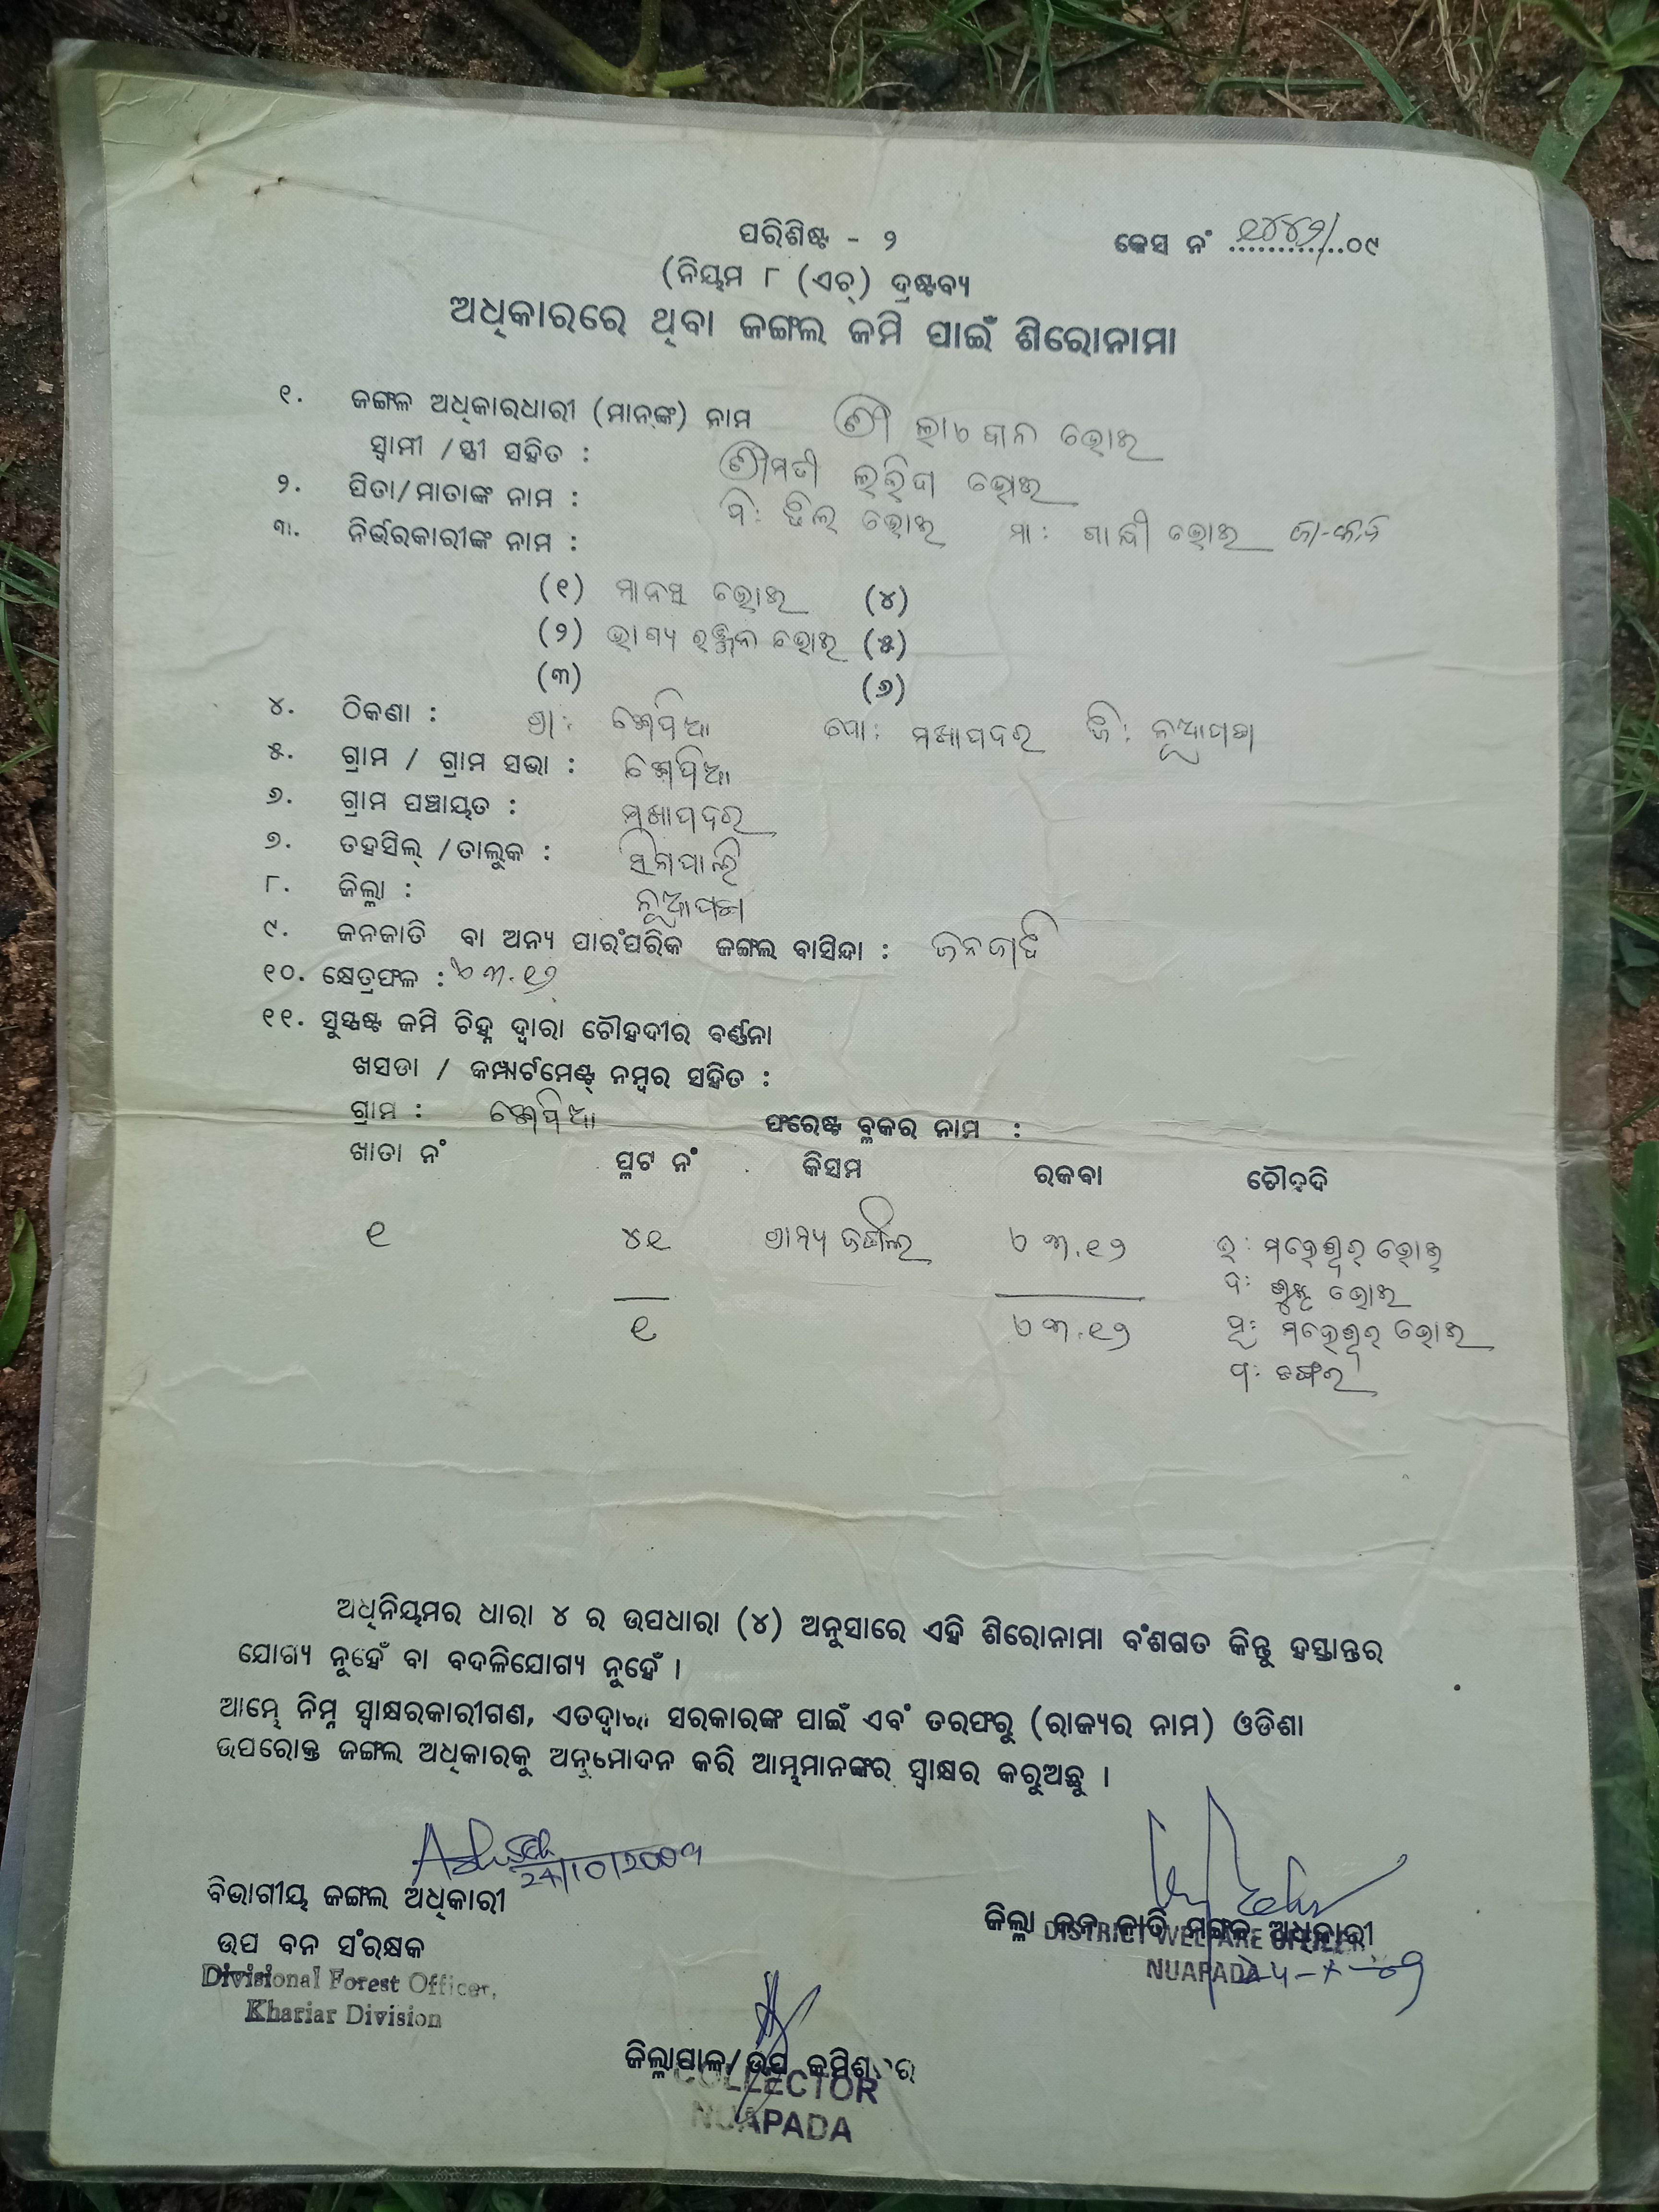 ପରିଶିଷ୍ଟ - ୨
କେସ ନଂ ............୦୯
(ନିୟମ ୮ (ଏଚ୍) ଦ୍ରଷ୍ଟବ୍ୟ
ଅଧିକାରରେ ଥିବା ଜଙ୍ଗଲ ଜମି ପାଇଁ ଶିରୋନାମା
୧. ଜଙ୍ଗଳ ଅଧିକାରଧାରୀ (ମାନ୍‌ଙ୍କ) ନାମ ଶ୍ରୀ ଭୋଇ
ସ୍ୱାମୀ /ସ୍ତ୍ରୀ ସହିତ : ଶ୍ରୀମତୀ ଭୋଇ
୨. ପିତା/ମାତାଙ୍କ ନାମ : ପି: ଭୋଇ ମା: ଭୋଇ
୩. ନିର୍ଭରକାରୀଙ୍କ ନାମ :
(୧) ମାନସ ଭୋଇ (୪)
(୨) ଭାଗ୍ୟ ରଞ୍ଜନ ଭୋଇ (୫)
(୩) (୬)
୪. ଠିକଣା : ଗ୍ରା: ପୋ: ମଖାପଦର ଜି: ନୂଆପଡା
୫. ଗ୍ରାମ / ଗ୍ରାମ ସଭା :
୬. ଗ୍ରାମ ପଞ୍ଚାୟତ : ମଖାପଦର
୭. ତହସିଲ୍ /ତାଲୁକ : ସିନାପାଲି
୮. ଜିଲ୍ଲା : ନୂଆପଡା
୯. ଜନଜାତି ବା ଅନ୍ୟ ପାରଂପରିକ ଜଙ୍ଗଲ ବାସିନ୍ଦା : ଜନଜାତି
୧୦. କ୍ଷେତ୍ରଫଳ : ଏ ୩.୧୨
୧୧. ସୁସ୍ପଷ୍ଟ ଜମି ଚିହ୍ନ ଦ୍ୱାରା ଚୌହଦୀର ବର୍ଣ୍ଣନା
ଖସଡା / କମ୍ପାର୍ଟମେଣ୍ଟ୍ ନମ୍ବର ସହିତ :
ଗ୍ରାମ : ଫରେଷ୍ଟ ବ୍ଳକର ନାମ :
ଖାତା ନଂ ପ୍ଳଟ ନଂ କିସମ ରକବା ଚୌହଦି
୧ ୪୧ ଗ୍ରାମ୍ୟ ଜଙ୍ଗଲ ଏ ୩.୧୨ ଉ: ମହେଶ୍ୱର ଭୋଇ
ଦ: ଭୋଇ
୧ ଏ ୩.୧୨ ପୂ: ମହେଶ୍ୱର ଭୋଇ
ପ: ଡଙ୍ଗର
ଅଧିନିୟମର ଧାରା ୪ ର ଉପଧାରା (୪) ଅନୁସାରେ ଏହି ଶିରୋନାମା ବଂଶଗତ କିନ୍ତୁ ହସ୍ତାନ୍ତର
ଯୋଗ୍ୟ ନୁହେଁ ବା ବଦଳିଯୋଗ୍ୟ ନୁହେଁ ।
ଆମ୍ଭେ ନିମ୍ନ ସ୍ୱାକ୍ଷରକାରୀଗଣ, ଏତଦ୍ୱାରା ସରକାରଙ୍କ ପାଇଁ ଏବଂ ତରଫରୁ (ରାଜ୍ୟର ନାମ) ଓଡିଶା
ଉପରୋକ୍ତ ଜଙ୍ଗଲ ଅଧିକାରକୁ ଅନୁମୋଦନ କରି ଆମ୍ଭମାନଙ୍କର ସ୍ୱାକ୍ଷର କରୁଅଛୁ ।
24/10/2009
ବିଭାଗୀୟ ଜଙ୍ଗଲ ଅଧିକାରୀ
ଉପ ବନ ସଂରକ୍ଷକ
Divisional Forest Officer,
Khariar Division
ଜିଲ୍ଲା ଜନ ଜାତି ମଙ୍ଗଳ ଅଧିକାରୀ
DISTRICT WELFARE OFFICER
NUAPADA
ଜିଲ୍ଲାପାଳ/ଉପ କମିଶନର
COLLECTOR
NUAPADA